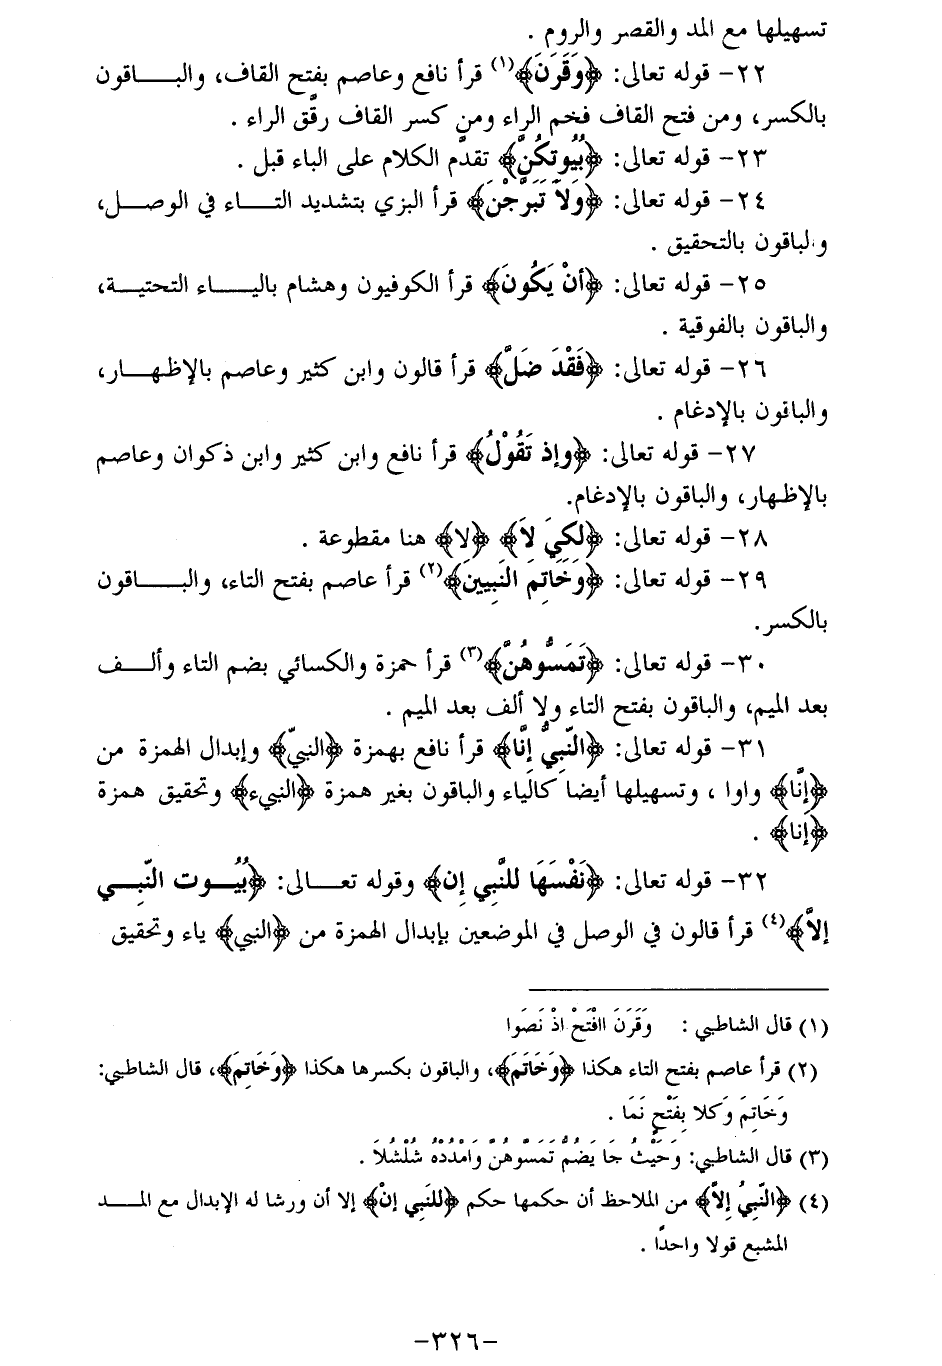 تسهيلها مع المد والقصر والروم .
٢٢- قوله تعالى: ﴿وَقَرَنَ﴾(١) قرأ نافع وعاصم بفتح القاف، والبـــاقون
بالكسر، ومن فتح القاف فخم الراء ومن كسر القاف رقَّق الراء .
٢٣- قوله تعالى: ﴿بُيُوتِكُنَّ﴾ تقدَّم الكلام على الباء قبل .
٢٤- قوله تعالى: ﴿وَلاَ تَبَرَّجْنَ﴾ قرأ البزي بتشديد التـــاء في الوصل،
والباقون بالتحقيق .
٢٥- قوله تعالى: ﴿أنْ يَكُونَ﴾ قرأ الكوفيون وهشام باليـــاء التحتيـــة،
والباقون بالفوقية .
٢٦- قوله تعالى: ﴿فَقْدَ ضَلَّ﴾ قرأ قالون وابن كثير وعاصم بالإظهـــار،
والباقون بالإدغام .
٢٧- قوله تعالى: ﴿وإذ تَقُوْلُ﴾ قرأ نافع وابن كثير وابن ذكوان وعاصم
بالإظهار، والباقون بالإدغام.
٢٨- قوله تعالى: ﴿لكيَ لاَ﴾ ﴿لا﴾ هنا مقطوعة .
٢٩- قوله تعالى: ﴿وَخَاتِمَ النَبِيينَ﴾(٢) قرأ عاصم بفتح التاء، والبـــاقون
بالكسر.
٣٠- قوله تعالى: ﴿تَمَسُّوهُنَّ﴾(٣) قرأ حمزة والكسائي بضم التاء وألـــف
بعد الميم، والباقون بفتح التاء ولا ألف بعد الميم .
٣١- قوله تعالى: ﴿النَّبِيُّ إنَّا﴾ قرأ نافع بهمزة ﴿النبيّ﴾ وإبدال الهمزة من
﴿إنَّا﴾ واوا ، وتسهيلها أيضا كالياء والباقون بغير همزة ﴿النبيء﴾ وتحقيق همزة
﴿إنا﴾ .
٣٢- قوله تعالى: ﴿نَفْسَهَا للنَّبِي إن﴾ وقوله تعـــالى: ﴿بُيُـــوت النَّبِـــي
إلاَّ﴾(٤) قرأ قالون في الوصل في الموضعين بإبدال الهمزة من ﴿النبي﴾ ياء وتحقيق
(١) قال الشاطبي : وَقَرَنَ اافْتَحْ اذْ نَصَوا
(٢) قرأ عاصم بفتح التاء هكذا ﴿وَخَاتَمَ﴾، والباقون بكسرها هكذا ﴿وَخَاتِمَ﴾، قال الشاطبي:
وَخَاتِمَ وَكلا بِفَتْحٍ نَمَا .
(٣) قال الشاطبي: وَحَيْثُ جَا يَضُمُّ تَمَسُّوهُنَّ وَامْدُدْهُ شُلْشُلاَ .
(٤) ﴿النَّبِيُ إلاَّ﴾ من الملاحظ أن حكمها حكم ﴿للنَبِي إنْ﴾ إلا أن ورشا له الإبدال مع المـــد
المشبع قولا واحدًا .
-٣٢٦-